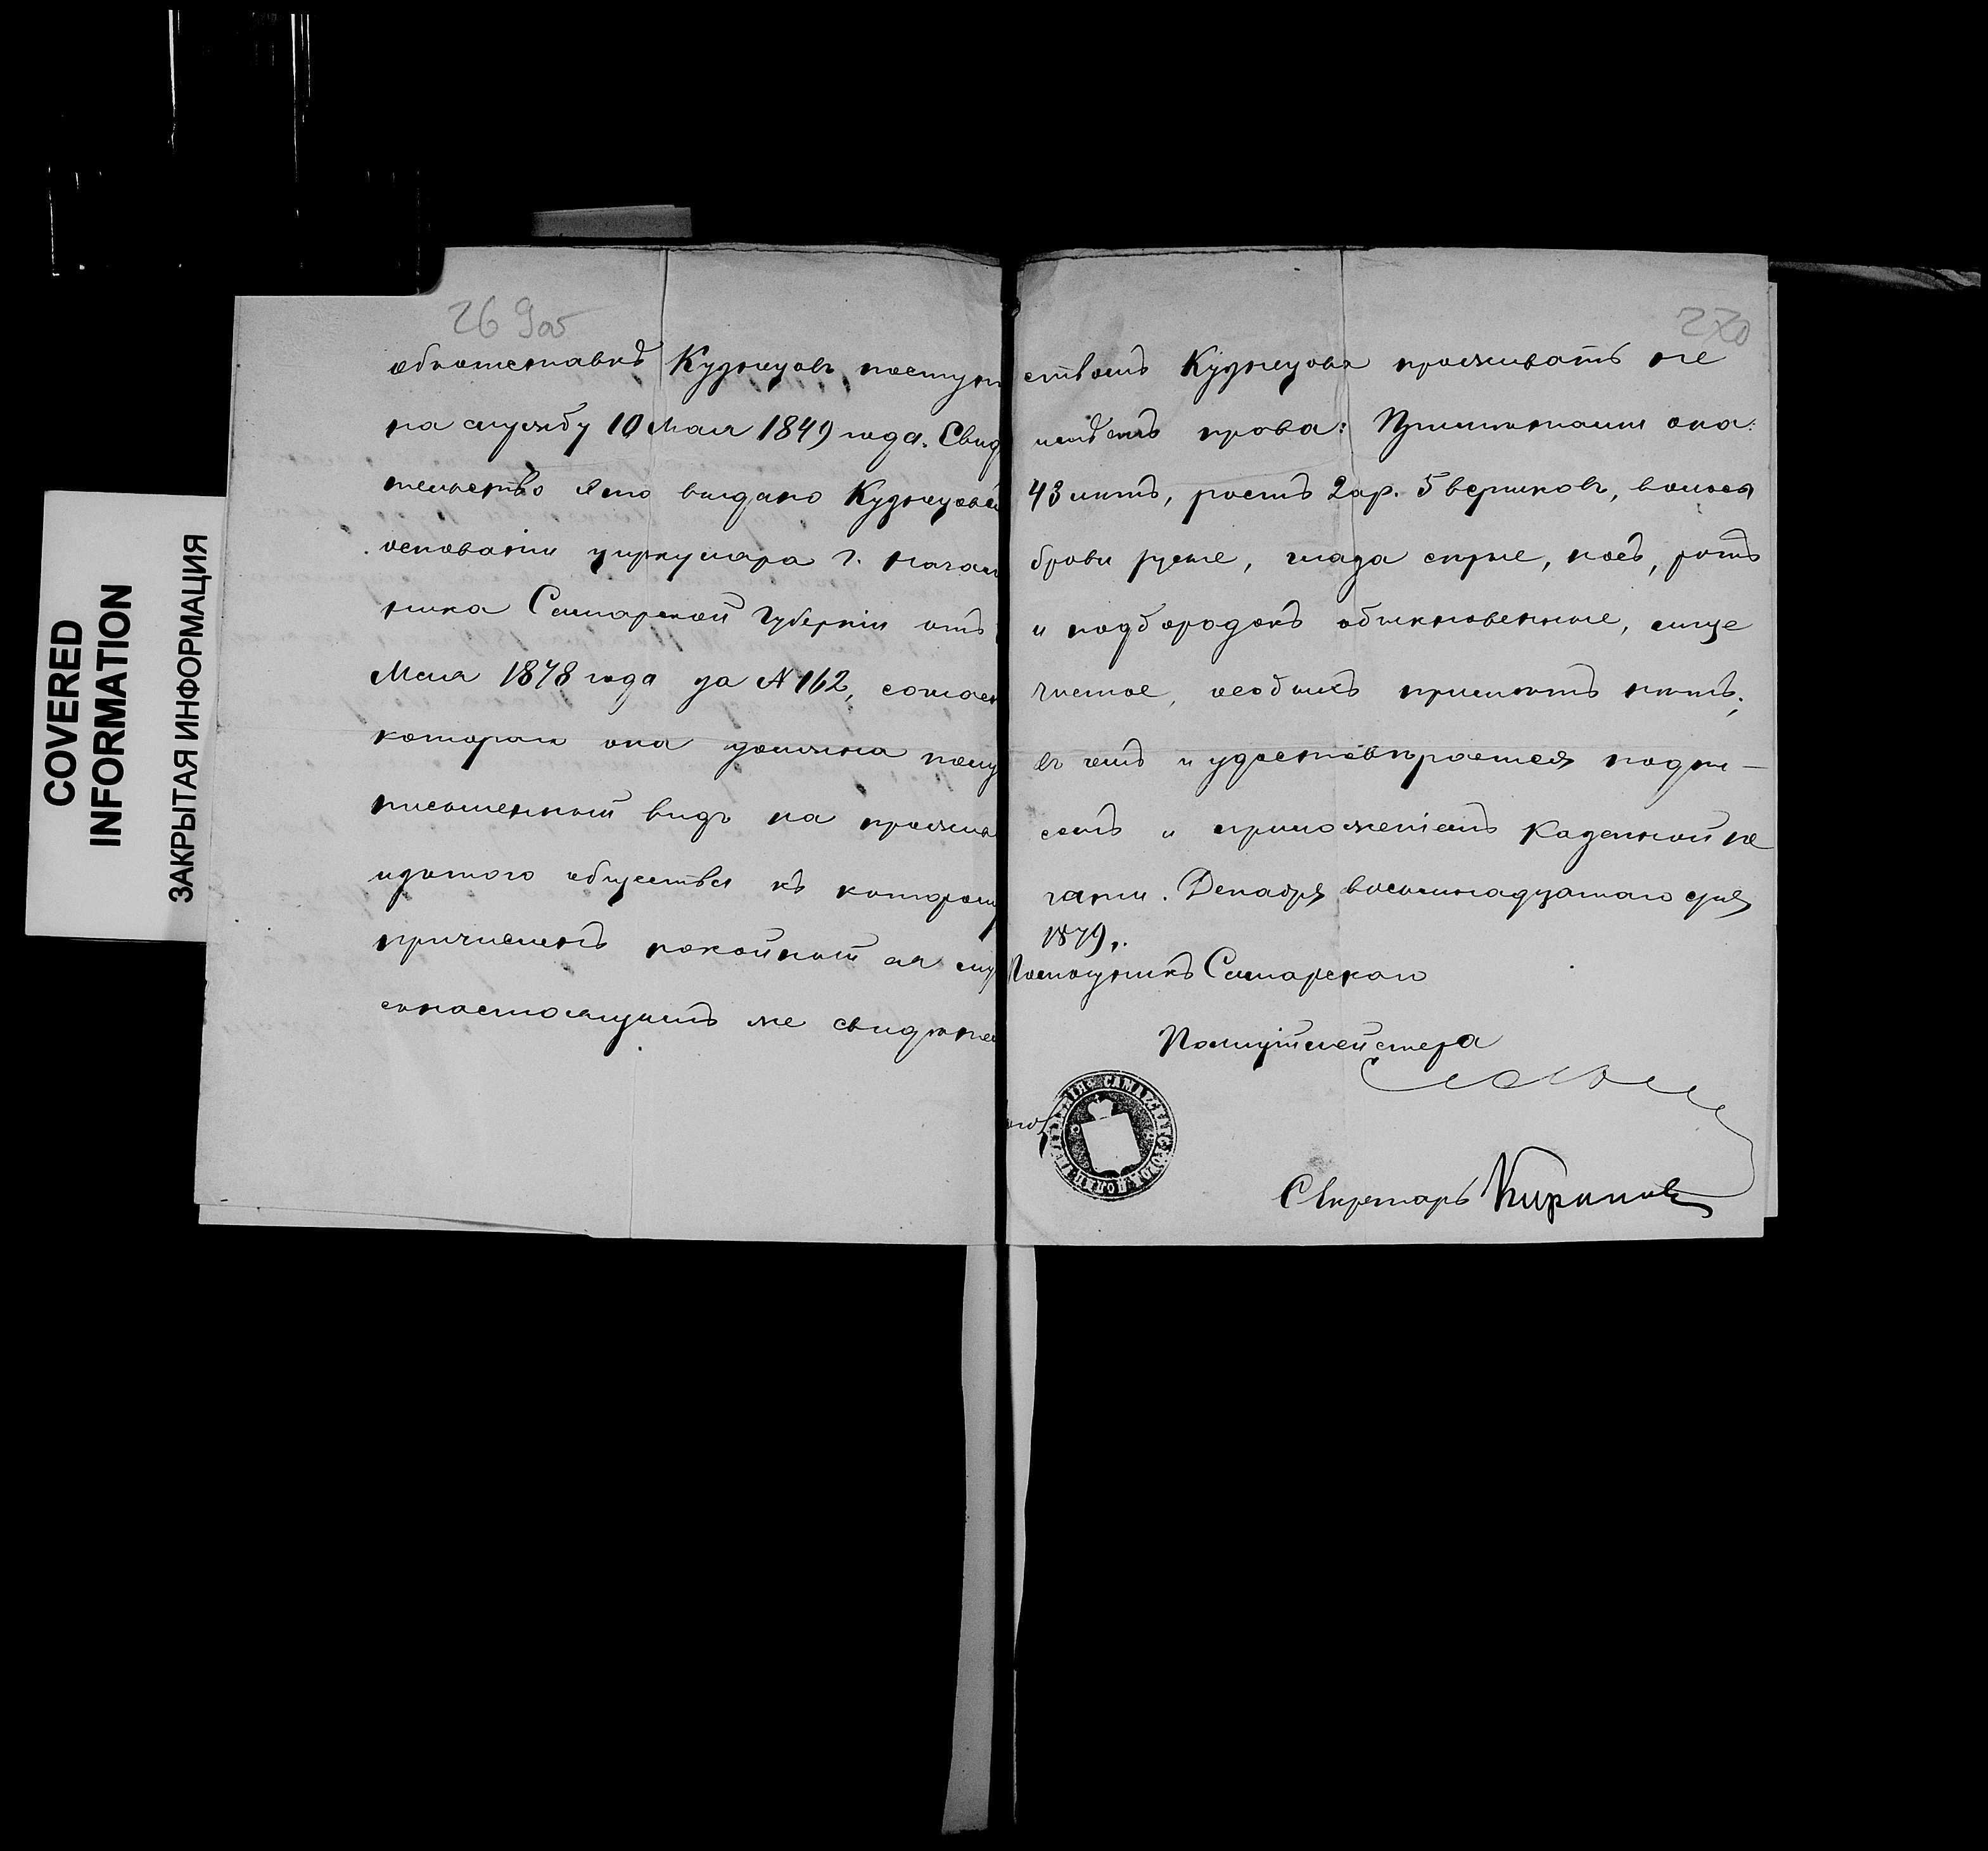 COVERED
INFORMATION
ЗАКРЫТАЯ ИНФОРМАЦИЯ
269об
объ отставкѣ Кузнецовъ поступи
на службу 10 Мая 1849 года. Свид
тельство это выдано Кузнецовой
основаніи циркуляра Г. Начал
ника Самарской Губерніи отъ
Мая 1878 года за №162, соглас
которой она должна полу
письменный видъ на прожив
изъ того общества къ котором
причисленъ покойный ея му
съ настоящимъ же свидѣте
270
ствомъ Кузнецова проживать не
имѣетъ права: Примѣтами она:
43 лѣтъ, ростъ 2 ар. 5 вершковъ, волосы
брови русые, глаза сѣрые, носъ, ротъ
и подбородокъ обыкновенные, лице
чистое, особыхъ примѣтъ нѣтъ;
въ чемъ и удостовѣряется подпи-
сомъ и приложеніемъ Казенной пе
чати. Декабря восемнадцатаго дня
1879 г.
Помощникъ Самарскаго
Полиціймейстера
Секретарь